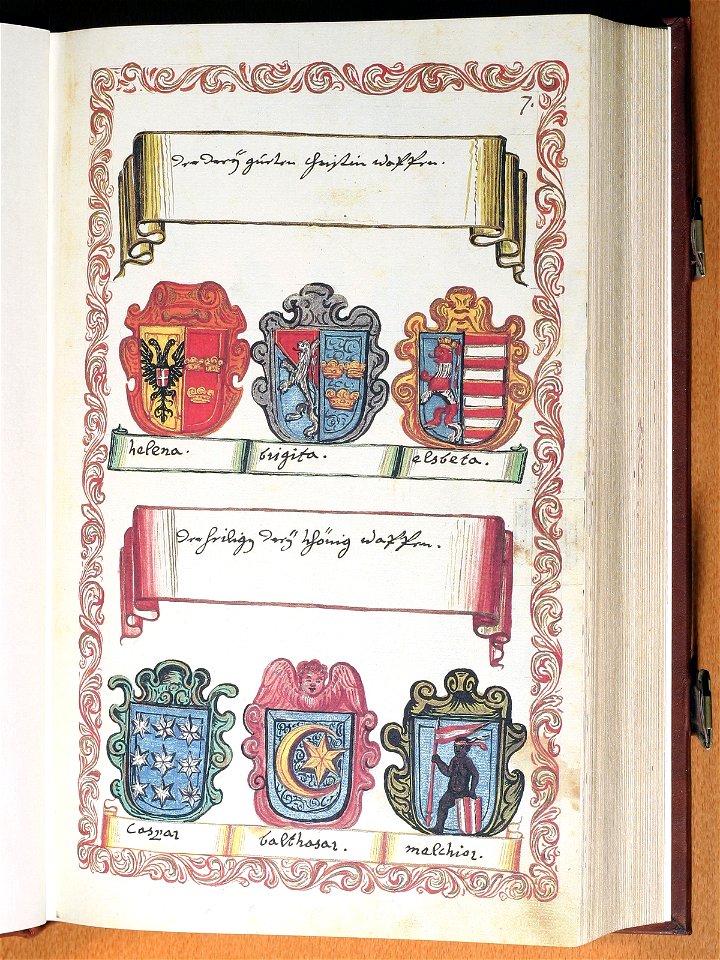 7.
der dreÿ gueten christin waffen.
helena. brigita. elsbeta.
der heilign dreÿ khönig waffen.
Caspar balthasar. melchior.